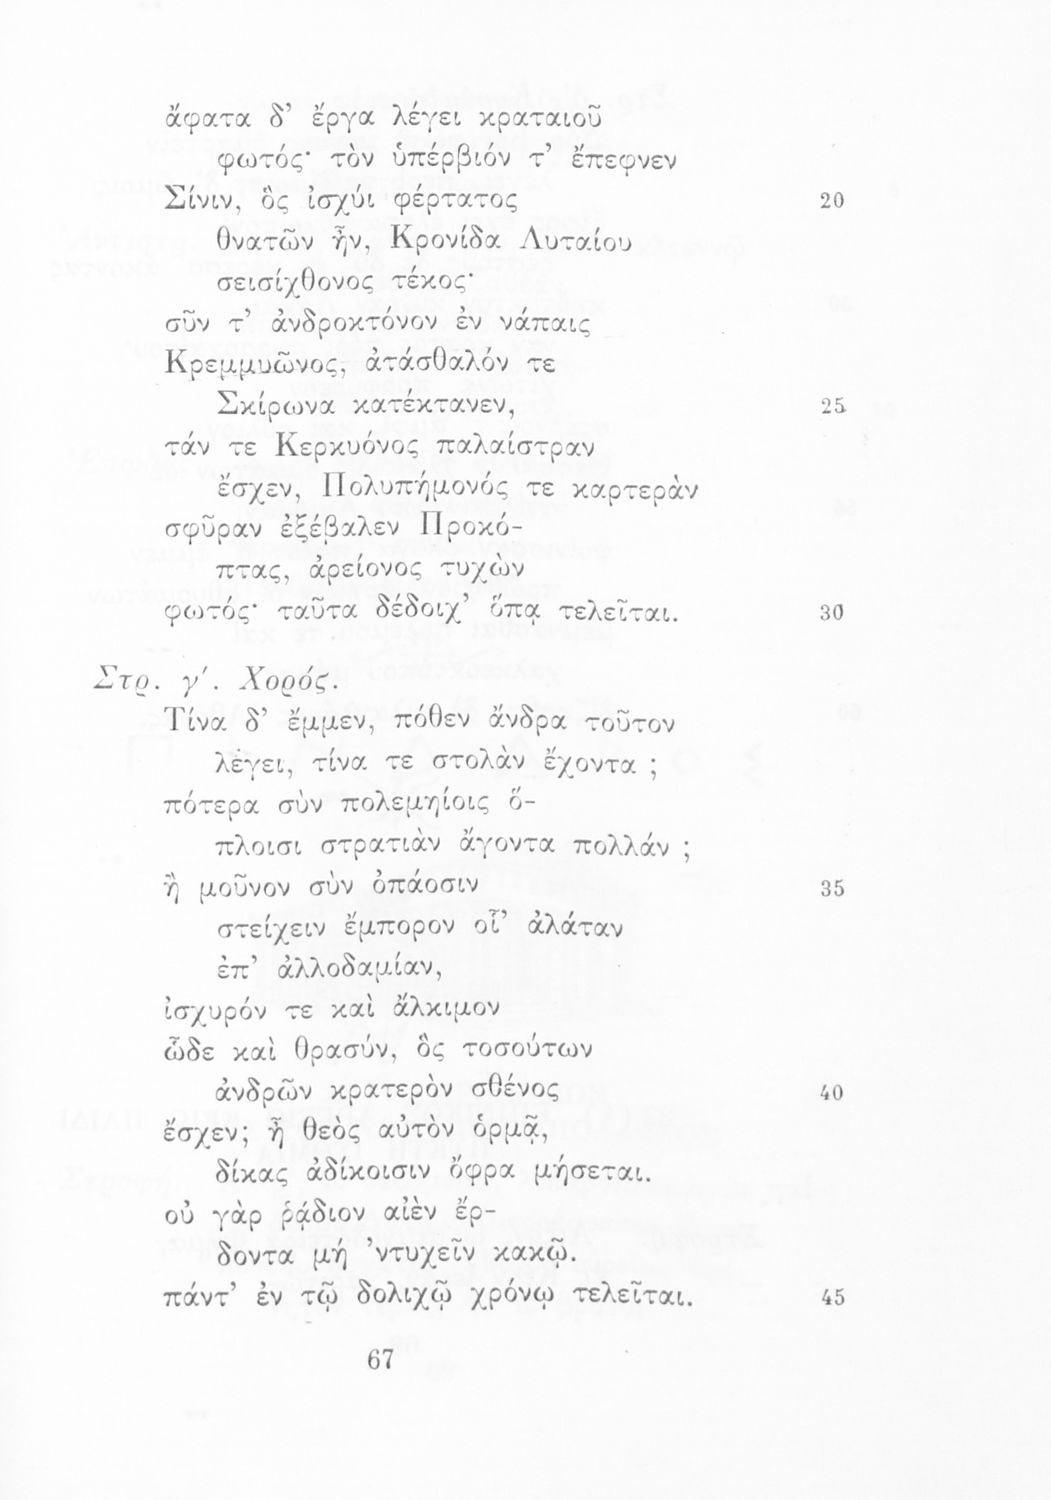 ἄφατα δ’ ἔργα λέγει κραταιοῦ
φωτός· τὸν ὑπέρβιόν τ’ ἔπεφνεν
Σίνιν, ὃς ἰσχύι φέρτατος 20
θνατῶν ἦν, Κρονίδα Λυταίου
σεισίχθονος τέκος·
σῦν τ’ ἀνδροκτόνον ἐν νάπαις
Κρεμμυῶνος, ἀτάσθαλόν τε
Σκίρωνα κατέκτανεν, 25
τάν τε Κερκυόνος παλαίστραν
ἔσχεν, Πολυπήμονός τε καρτερὰν
σφῦραν ἐξέβαλεν Προκό-
πτας, ἀρείονος τυχὼν
φωτός· ταῦτα δέδοιχ’ ὅπᾳ τελεῖται. 30
Στρ. γ′. Χορός.
Τίνα δ’ ἔμμεν, πόθεν ἄνδρα τοῦτον
λέγει, τίνα τε στολὰν ἔχοντα ;
πότερα σὺν πολεμηίοις ὅ-
πλοισι στρατιὰν ἄγοντα πολλάν ;
ἢ μοῦνον σὺν ὀπάοσιν 35
στείχειν ἔμπορον οἷ’ ἀλάταν
ἐπ’ ἀλλοδαμίαν,
ἰσχυρόν τε καὶ ἄλκιμον
ὧδε καὶ θρασύν, ὃς τοσούτων
ἀνδρῶν κρατερὸν σθένος 40
ἔσχεν; ἦ θεὸς αὐτὸν ὁρμᾷ,
δίκας ἀδίκοισιν ὄφρα μήσεται.
οὐ γὰρ ῥᾴδιον αἰὲν ἔρ-
δοντα μή ’ντυχεῖν κακῷ.
πάντ’ ἐν τῷ δολιχῷ χρόνῳ τελεῖται. 45
67